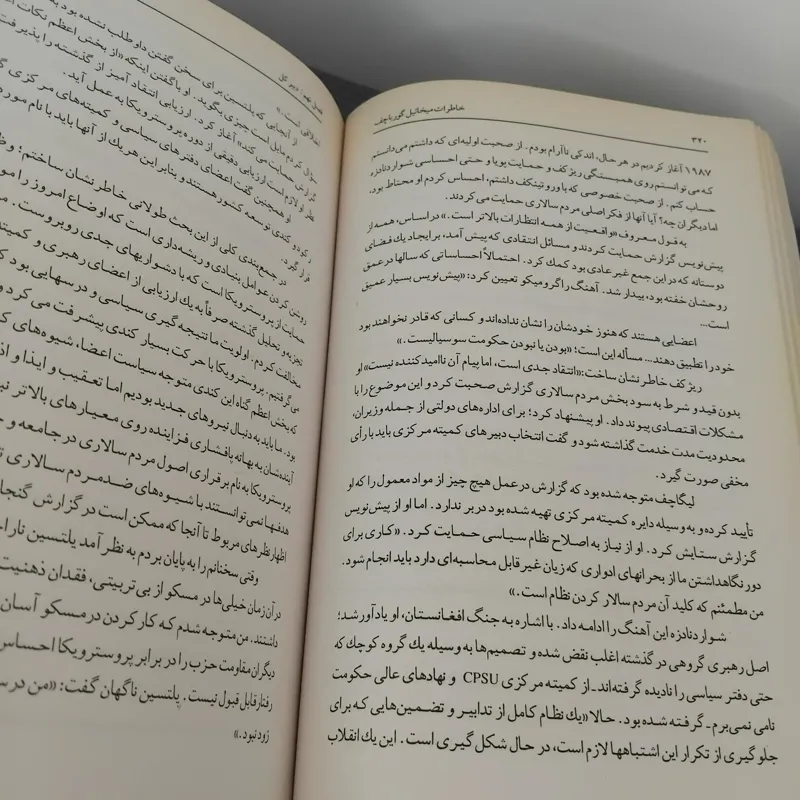 خاطرات میخائیل گورباچف
۳۴۰
۱۹۸۷ آغاز کردیم در هر حال، اندکی ناآرام بودم. از صحبت اولیه‌ای که داشتم می‌دانستم
که می‌توانستم روی همبستگی ریژکف و حمایت پویا و حتی احساسی شواردنادزه
حساب کنم. از صحبت خصوصی که با وروتنیکف داشتم، احساس کردم او محتاط بود.
اما دیگران چه؟ آیا آنها از فکر اصلی مردم سالاری حمایت می‌کردند.
به قول معروف «واقعیت از همه انتظارات بالاتر است.» در اساس، همه از
پیش‌نویس گزارش حمایت کردند و مسائل انتقادی که پیش آمد، بر ایجاد یك فضای
دوستانه که در این جمع غیر عادی بود کمك کرد. احتمالاً احساساتی که سالها در عمق
روحشان خفته بود، بیدار شد. آهنگ را گرومیکو تعیین کرد: «پیش‌نویس بسیار عمیق
است...
اعضایی هستند که هنوز خودشان را نشان نداده‌اند و کسانی که قادر نخواهند بود
خود را تطبیق دهند... مسأله این است؛ «بودن یا نبودن حکومت سوسیالیست.»
ریژکف خاطر نشان ساخت: «انتقاد جدی است، اما پیام آن ناامیدکننده نیست» او
بدون قید و شرط به سود بخش مردم سالاری گزارش صحبت کرد و این موضوع را با
مشکلات اقتصادی پیوند داد. او پیشنهاد کرد؛ برای اداره‌های دولتی از جمله وزیران،
محدودیت مدت خدمت گذاشته شود و گفت انتخاب دبیرهای کمیته مرکزی باید با رأی
مخفی صورت گیرد.
لیگاچف متوجه شده بود که گزارش در عمل هیچ چیز از مواد معمول را که او
تأیید کرده و به وسیله دایره کمیته مرکزی تهیه شده بود در بر ندارد. اما او از پیش‌نویس
گزارش ستایش کرد. او از نیاز به اصلاح نظام سیاسی حمایت کرد. «کاری برای
دور نگاهداشتن ما از بحرانهای ادواری که زیان غیر قابل محاسبه‌ای دارد باید انجام شود.
من مطمئنم که کلید آن مردم سالار کردن نظام است.»
شواردنادزه این آهنگ را ادامه داد. با اشاره به جنگ افغانستان، او یادآور شد؛
اصل رهبری گروهی در گذشته اغلب نقض شده و تصمیم‌ها به وسیله یك گروه کوچك که
حتی دفتر سیاسی را نادیده گرفته‌اند - از کمیته مرکزی CPSU و نهادهای عالی حکومت
نامی نمی‌برم - گرفته شده بود. حالا «یك نظام کامل از تدابیر و تضمین‌هایی که برای
جلوگیری از تکرار این اشتباهها لازم است، در حال شکل گیری است. این یك انقلاب
فصل نهم: دبیر کل
از آنجایی که یلتسین برای سخن گفتن داوطلب نشده بود
سؤال کردم مایل است چیزی بگوید. او با گفتن اینکه «از بخش اعظم نکات
گزارش حمایت می‌کند» آغاز کرد. ارزیابی انتقاد آمیز از گذشته را پذیرفت
نظر او لازم است ارزیابی دقیقی از دوره پروسترویکا به عمل آید.
او همچنین گفت اعضای دفترهای سیاسی و کمیته‌های مرکزی
رکود و کندی توسعه کشور هستند و بنابر این هر یك از آنها باید با نام مورد
قرار گیرد.
در جمع‌بندی کلی از این بحث طولانی خاطر نشان ساختم؛
روشن کردن عوامل بنیادی و ریشه‌داری است که اوضاع امروز را
حمایت از پروسترویکا است که با دشواریهای جدی روبروست.
تجزیه و تحلیل گذشته صرفاً به یك ارزیابی از اعضای رهبری و
مخالفت کردم. اولویت ما نتیجه گیری سیاسی و درسهایی بود
می‌گرفتیم. پروسترویکا با حرکت بسیار کندی پیشرفت می‌کرد و
که بخش اعظم گناه این کندی متوجه سیاست اعضا، شیوه‌های
بود. ما باید به دنبال نیروهای جدید بودیم اما تعقیب و ایذا و
آینده‌شان به بهانه پافشاری فزاینده روی معیارهای بالاتر
پروسترویکا به نام برقراری اصول مردم سالاری در جامعه و
هدفها نمی‌توانستند با شیوه‌های ضد مردم سالاری
اظهار نظرهای مربوط تا آنجا که ممکن است در گزارش
وقتی سخنانم را به پایان بردم به نظر آمد یلتسین
در آن زمان خیلی‌ها در مسکو از بی‌تربیتی، فقدان ذهنیت
داشتند. من متوجه شدم که کار کردن در مسکو آسان
دیگران مقاومت حزب را در برابر پروسترویکا احساس
رفتار قابل قبول نیست. یلتسین ناگهان گفت: «من در
زود نبود.»